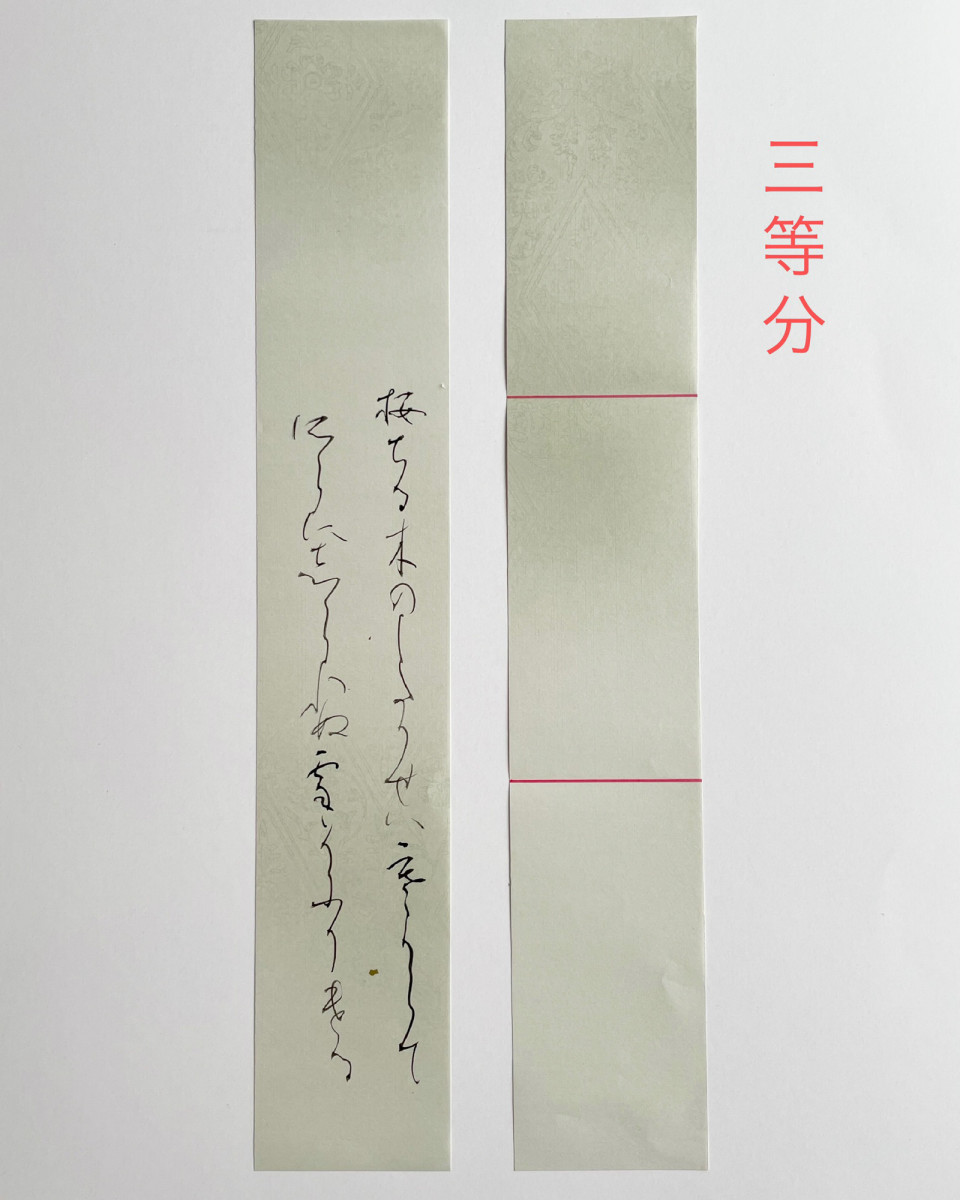 三等分
桜ちる木のしたかせハ寒からて
そらに志られぬ雪そふりける